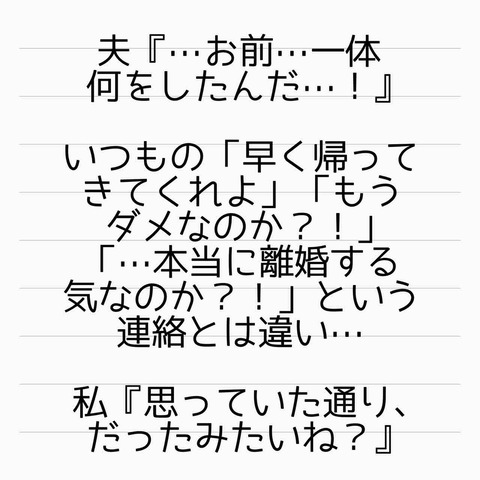 夫『…お前…一体
何をしたんだ…！』
いつもの「早く帰って
きてくれよ」「もう
ダメなのか？！」
「…本当に離婚する
気なのか？！」という
連絡とは違い…
私『思っていた通り、
だったみたいね？』